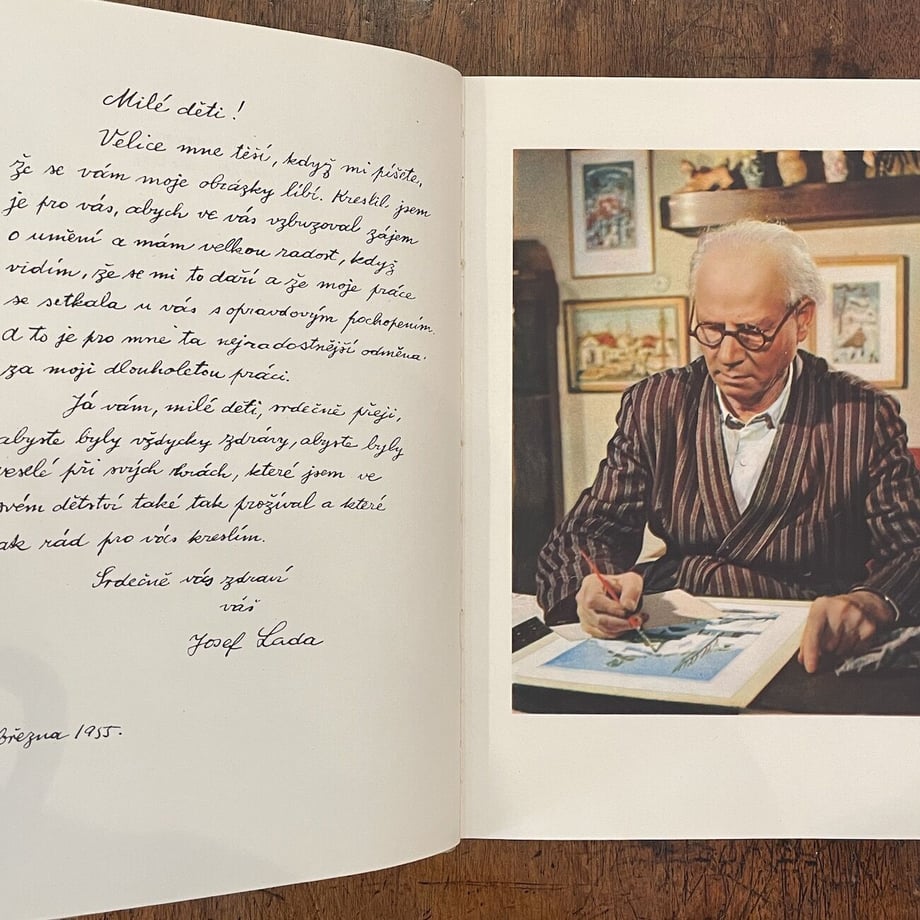 Milé děti!
Velice mne těší, když mi píšete,
že se vám moje obrázky líbí. Kreslil jsem
je pro vás, abych ve vás vzbuzoval zájem
o umění a mám velkou radost, když
vidím, že se mi to daří a že moje práce
se setkala u vás s opravdovým pochopením.
A to je pro mne ta nejradostnější odměna
za moji dlouholetou práci.
Já vám, milé děti, srdečně přeji,
abyste byly vždycky zdrávy, abyste byly
veselé při svých hrách, které jsem ve
svém dětství také tak prožíval a které
tak rád pro vás kreslím.
Srdečně vás zdraví
váš
Josef Lada
března 1955.